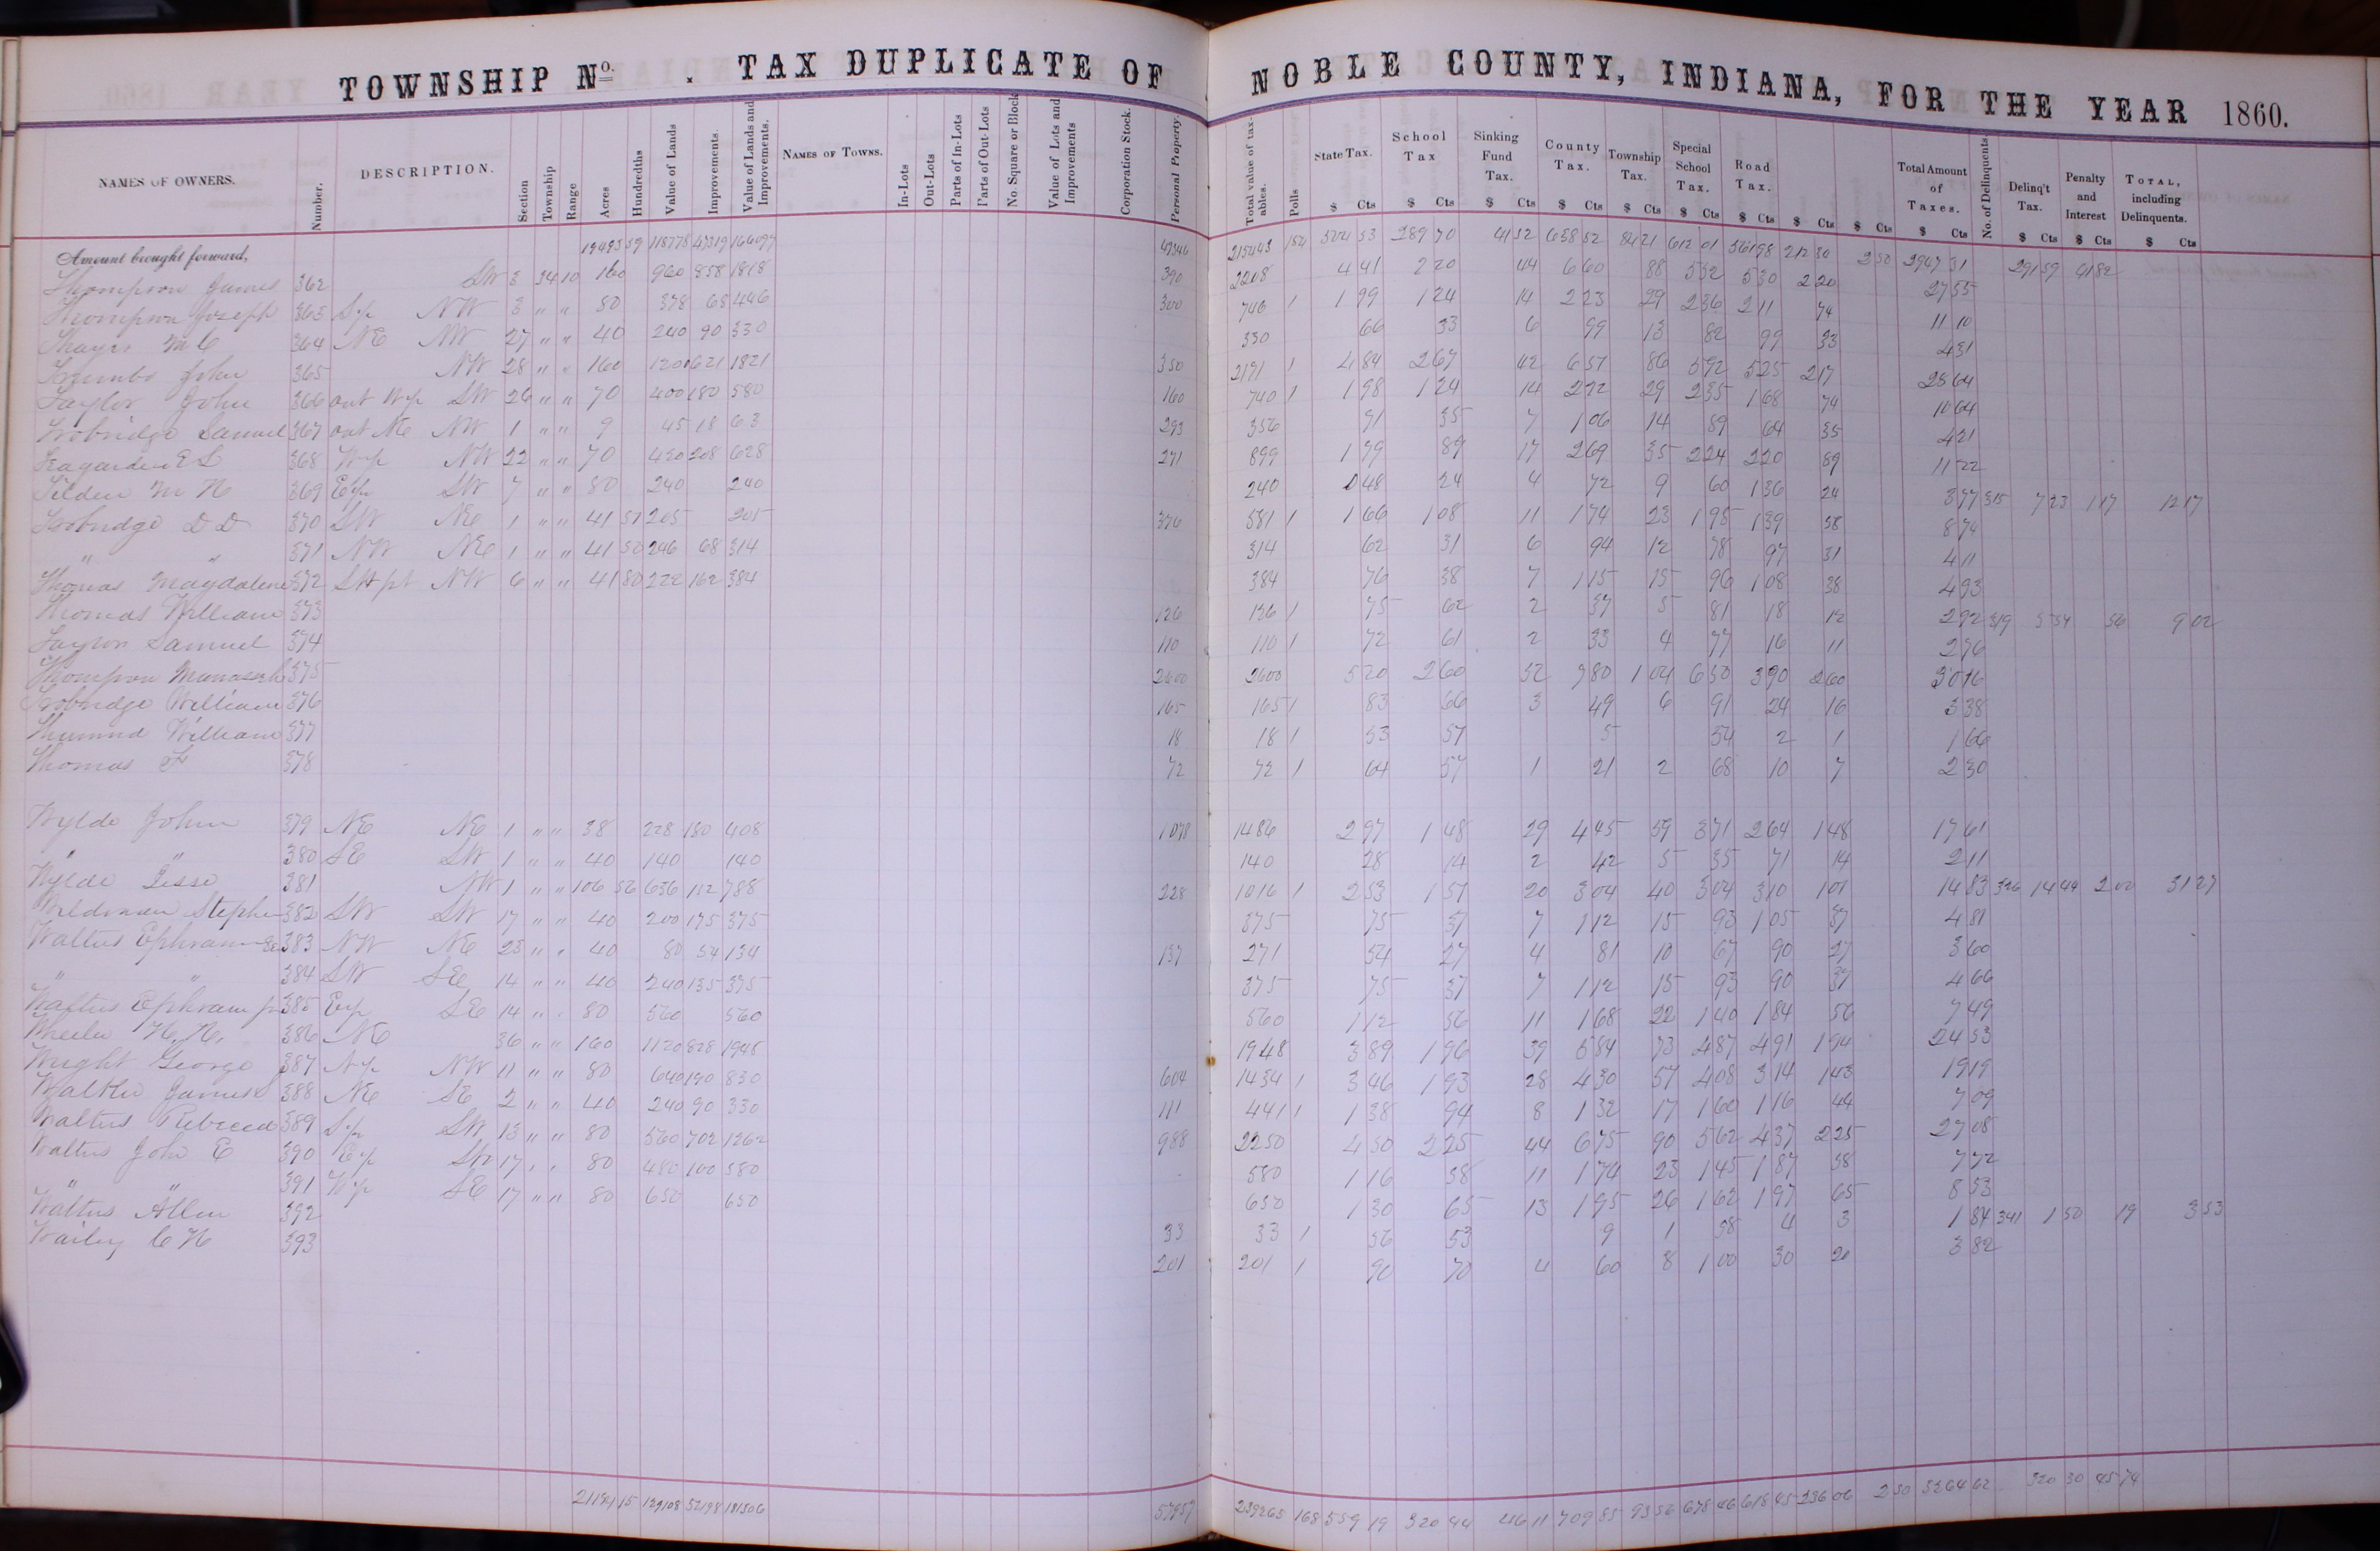 TOWNSHIP No. . TAX DUPLICATE OF NOBLE COUNTY, INDIANA, FOR THE YEAR 1860.
NAMES OF OWNERS. Number. DESCRIPTION. Section Township Range Acres Hundredths Value of Lands Improvements. Value of Lands and Improvements. NAMES OF TOWNS. In-Lots Out-Lots Parts of In-Lots Parts of Out-Lots No Square or Block Value of Lots and Improvements Corporation Stock. Personal Property. Total value of taxables. Polls State Tax. School Tax Sinking Fund Tax. County Tax. Township Tax. Special School Tax. Road Tax. Total Amount of Taxes. No. of Delinquents Delinq't Tax. Penalty and Interest TOTAL, including Delinquents.
$ Cts $ Cts $ Cts $ Cts $ Cts $ Cts $ Cts $ Cts $ Cts $ Cts $ Cts $ Cts $ Cts
Amount brought forward, 19493 59 118778 47319 166097 49346 215443 154 289 70 41 52 638 52 84 21 612 01 561 98 212 30 2 50 2947 31 291 59 41 82
Thompson James 362 SW 3 34 10 160 960 858 1818 390 2208 4 41 2 20 44 6 60 88 5 52 5 30 2 20 27 55
Thompson Joseph 363 S½ NW 3 " " 80 378 68 446 300 746 1 1 99 1 24 14 2 23 29 2 36 2 11 74 11 10
Thayer M C 364 NE NW 27 " " 40 240 90 330 330 66 33 6 99 13 82 99 33 4 31
John 365 NW 28 " " 160 1200 621 1821 350 2171 1 4 84 2 67 42 6 51 86 5 92 5 25 2 17 25 64
Taylor John 366 out W½ SW 26 " " 70 400 180 580 160 740 1 1 98 1 24 14 2 22 29 2 35 1 68 74 10 64
Trobridge Samuel 367 out NE NW 1 " " 9 45 18 63 293 356 71 35 7 1 06 14 89 64 35 4 21
Teagarden E L 368 W½ NW 22 " " 70 420 208 628 271 899 1 79 89 17 2 69 35 2 24 2 20 89 11 22
Tilden M N 369 E½ SW 7 " " 80 240 240 240 48 24 4 72 9 60 1 36 24 3 77 315 7 23 1 17 12 17
Trobridge D D 370 SW NE 1 " " 41 51 205 205 376 581 1 1 66 1 08 11 1 74 23 1 95 1 39 58 8 74
" " 371 NW NE 1 " " 41 50 246 68 314 314 62 31 6 94 12 78 97 31 4 11
Thomas Magdalene 372 SW pt NW 6 " " 41 80 222 162 384 384 76 38 7 1 15 15 96 1 08 38 4 93
Thomas William 373 126 126 1 75 62 2 37 5 81 18 12 2 92 319 5 54 56 9 02
Taylor Samuel 374 110 110 1 72 61 2 33 4 77 16 11 2 76
Thompson Manaseh 375 2600 2600 5 20 2 60 52 7 80 1 04 6 50 3 90 2 60 30 16
Trobridge William 376 165 165 1 83 66 3 49 6 91 24 16 3 38
William 377 18 18 1 53 51 5 54 2 1 1 66
Thomas F 378 72 72 1 64 57 1 21 2 68 10 7 2 30
Wylde John 379 NE NE 1 " " 38 228 180 408 1078 1486 2 97 1 48 29 4 45 59 3 71 2 64 1 48 17 61
" " 380 SE SW 1 " " 40 140 140 140 28 14 2 42 5 35 71 14 2 11
Wylde Jesse 381 NW 1 " " 106 56 636 152 788 228 1016 1 2 53 1 51 20 3 04 40 3 04 3 10 1 01 14 83 326 14 44 2 00 31 27
Wildman Stephen 382 SW SW 17 " " 40 200 175 375 375 75 37 7 1 12 15 93 1 05 37 4 81
Waltus Ephraim Sr 383 NW NE 23 " " 40 80 54 134 137 271 54 27 4 81 10 67 90 27 3 60
" " 384 SW SE 14 " " 40 240 135 375 375 75 37 7 1 12 15 93 90 37 4 66
Waltus Ephraim jr 385 E½ SE 14 " " 80 560 560 560 1 12 56 11 1 68 22 1 40 1 84 56 7 49
Wheeler H. H. 386 NE 36 " " 160 1120 828 1948 1948 3 89 1 96 39 5 84 73 4 87 4 91 1 94 24 53
Wright George 387 N½ NW 11 " " 80 640 190 830 604 1434 1 3 46 1 93 28 4 30 57 4 08 3 14 1 43 19 19
Walther James 388 NE SE 2 " " 40 240 90 330 111 441 1 1 38 94 8 1 32 17 1 60 1 16 44 7 09
Waltus Rebecca 389 S½ SW 13 " " 80 560 702 1262 988 2250 4 50 2 25 44 6 75 90 5 62 4 37 2 25 27 08
Waltus John E 390 E½ SW 17 " " 80 480 100 580 580 1 16 58 11 1 74 23 1 45 1 87 58 7 72
" " 391 W½ SE 17 " " 80 650 650 650 1 30 65 13 1 95 26 1 62 1 97 65 8 53
Waltus Allen 392 33 33 1 56 53 9 1 58 4 3 1 84 341 1 50 19 3 53
Wailey C H 393 201 201 1 90 70 4 60 8 1 00 30 20 3 82
21194 15 129108 52198 181306 57957 239265 168 559 19 320 44 46 11 709 85 93 56 678 46 618 45 236 06 2 50 3264 62 320 30 45 74